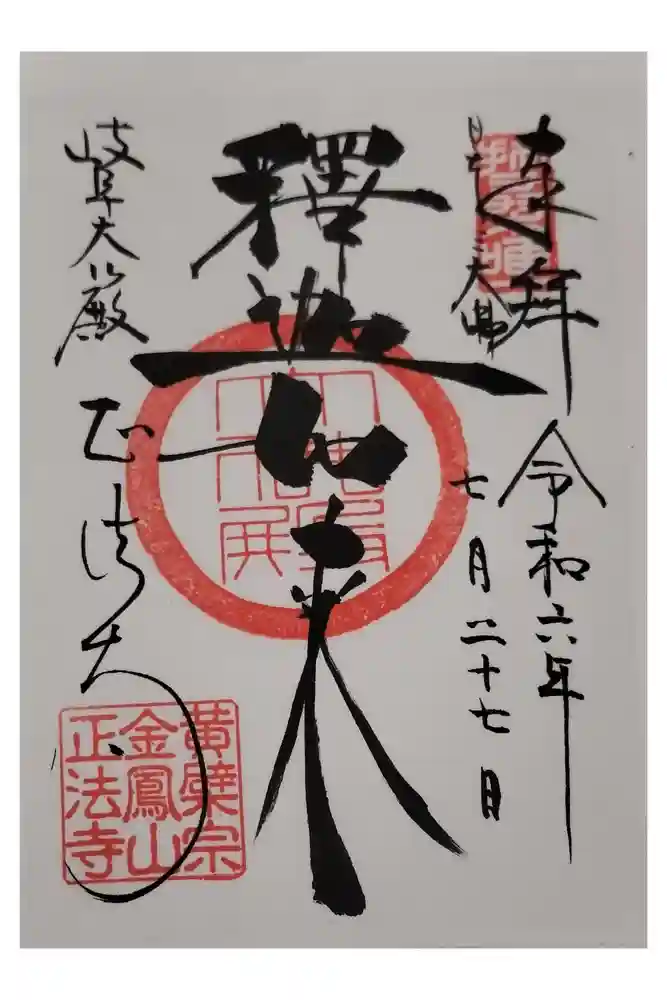 奉拜
日本三大佛
令和六年
七月二十七日
釋迦如来
岐阜大仏殿
正法寺
黄檗宗
金鳳山
正法寺